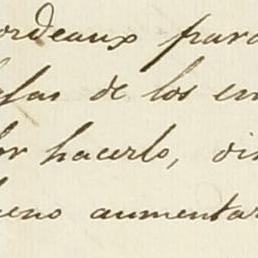 ordeaux para
las de los em
por hacerlo, di
bueno aumentar